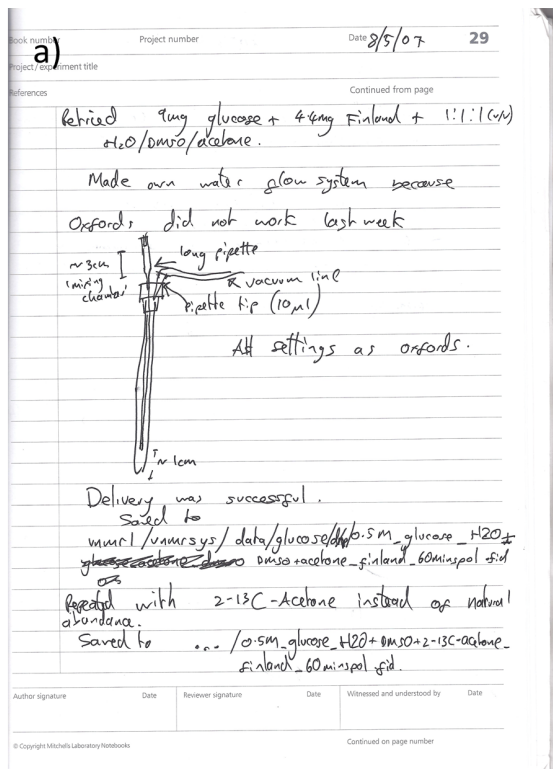 Book number
Project number
Date 8/5/07
29
a)
Project/experiment title
References
Continued from page
Retried 9mg glucose + 44mg Finland + 1:1:1 (v/v)
H2O/DMSO/acetone.
Made own water flow system because
Oxfords did not work last week
~3cm
'mixing
chamber'
long pipette
vacuum line
pipette tip (10µl)
All settings as oxfords.
~1cm
Delivery was successful.
Saved to
mmrl/vnmrsys/data/glucose/dnp/0.5M_glucose_H2O+
DMSO+acetone_finland_60minspol.fid
Repeated with 2-13C-Acetone instead of natural
abundance.
Saved to .../0.5M_glucose_H2O+DMSO+2-13C-acetone_
finland_60minspol.fid.
Author signature
Date
Reviewer signature
Date
Witnessed and understood by
Date
© Copyright Mitchells Laboratory Notebooks
Continued on page number